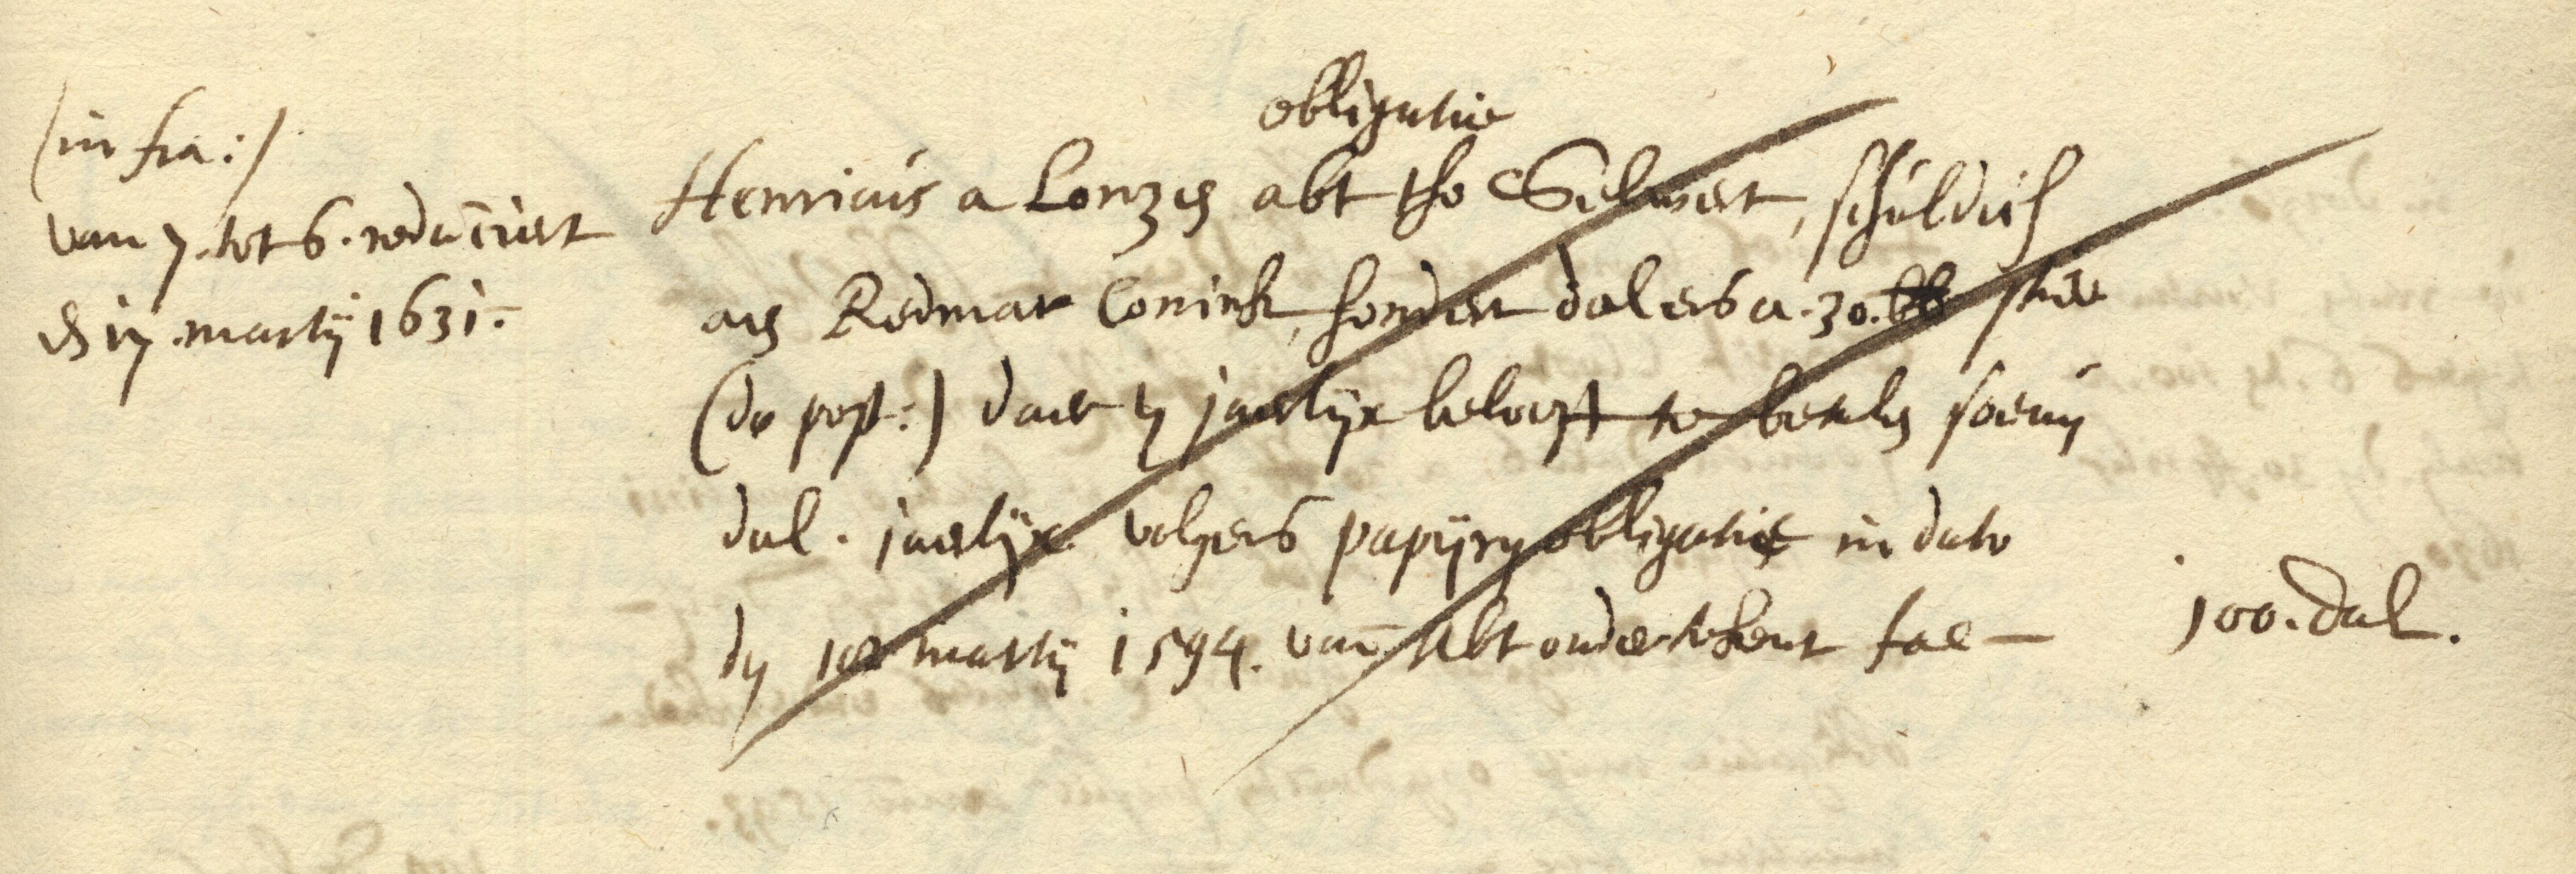 (infra:)
van 7. tot 6. reduciert
den 17. martij 1631.
obligatie
Henricus a Lonzen abt tho Selwert, schuldich
an Redmar Conink, hondert dalers a. 30. stuv
(de post:) daer jaerlijx belooft te betalen
dal. jaerlijx volgens papijren obligatie in dato
den martij 1594. van Abt ondertekent fae
100. dal.